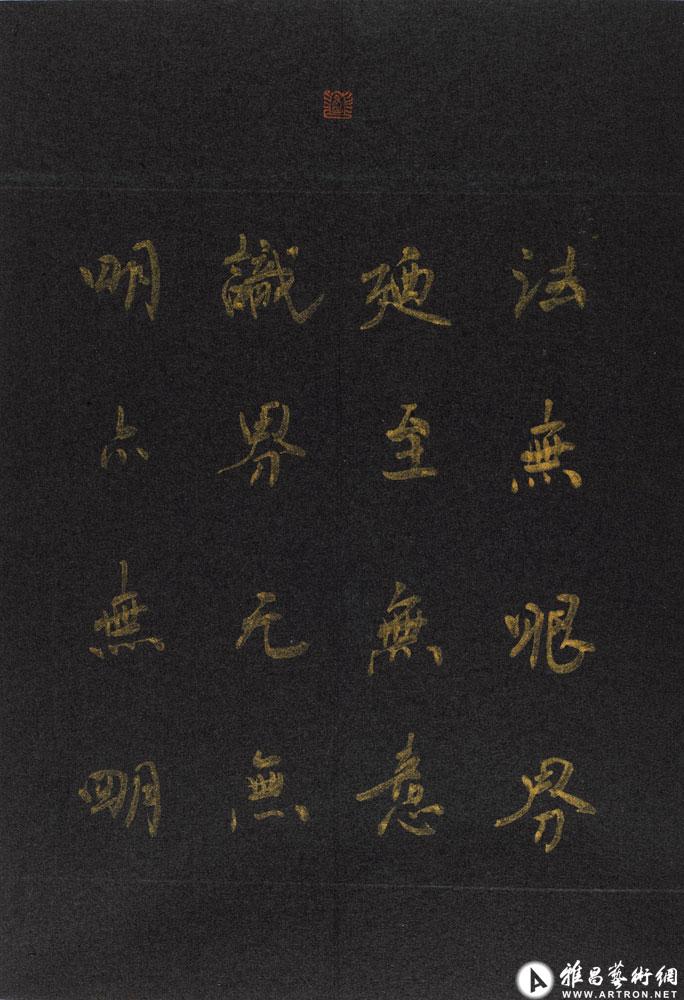 法無眼界
廼至無意
識界无無
明亦無明
雅昌藝術網
WWW.ARTRON.NET